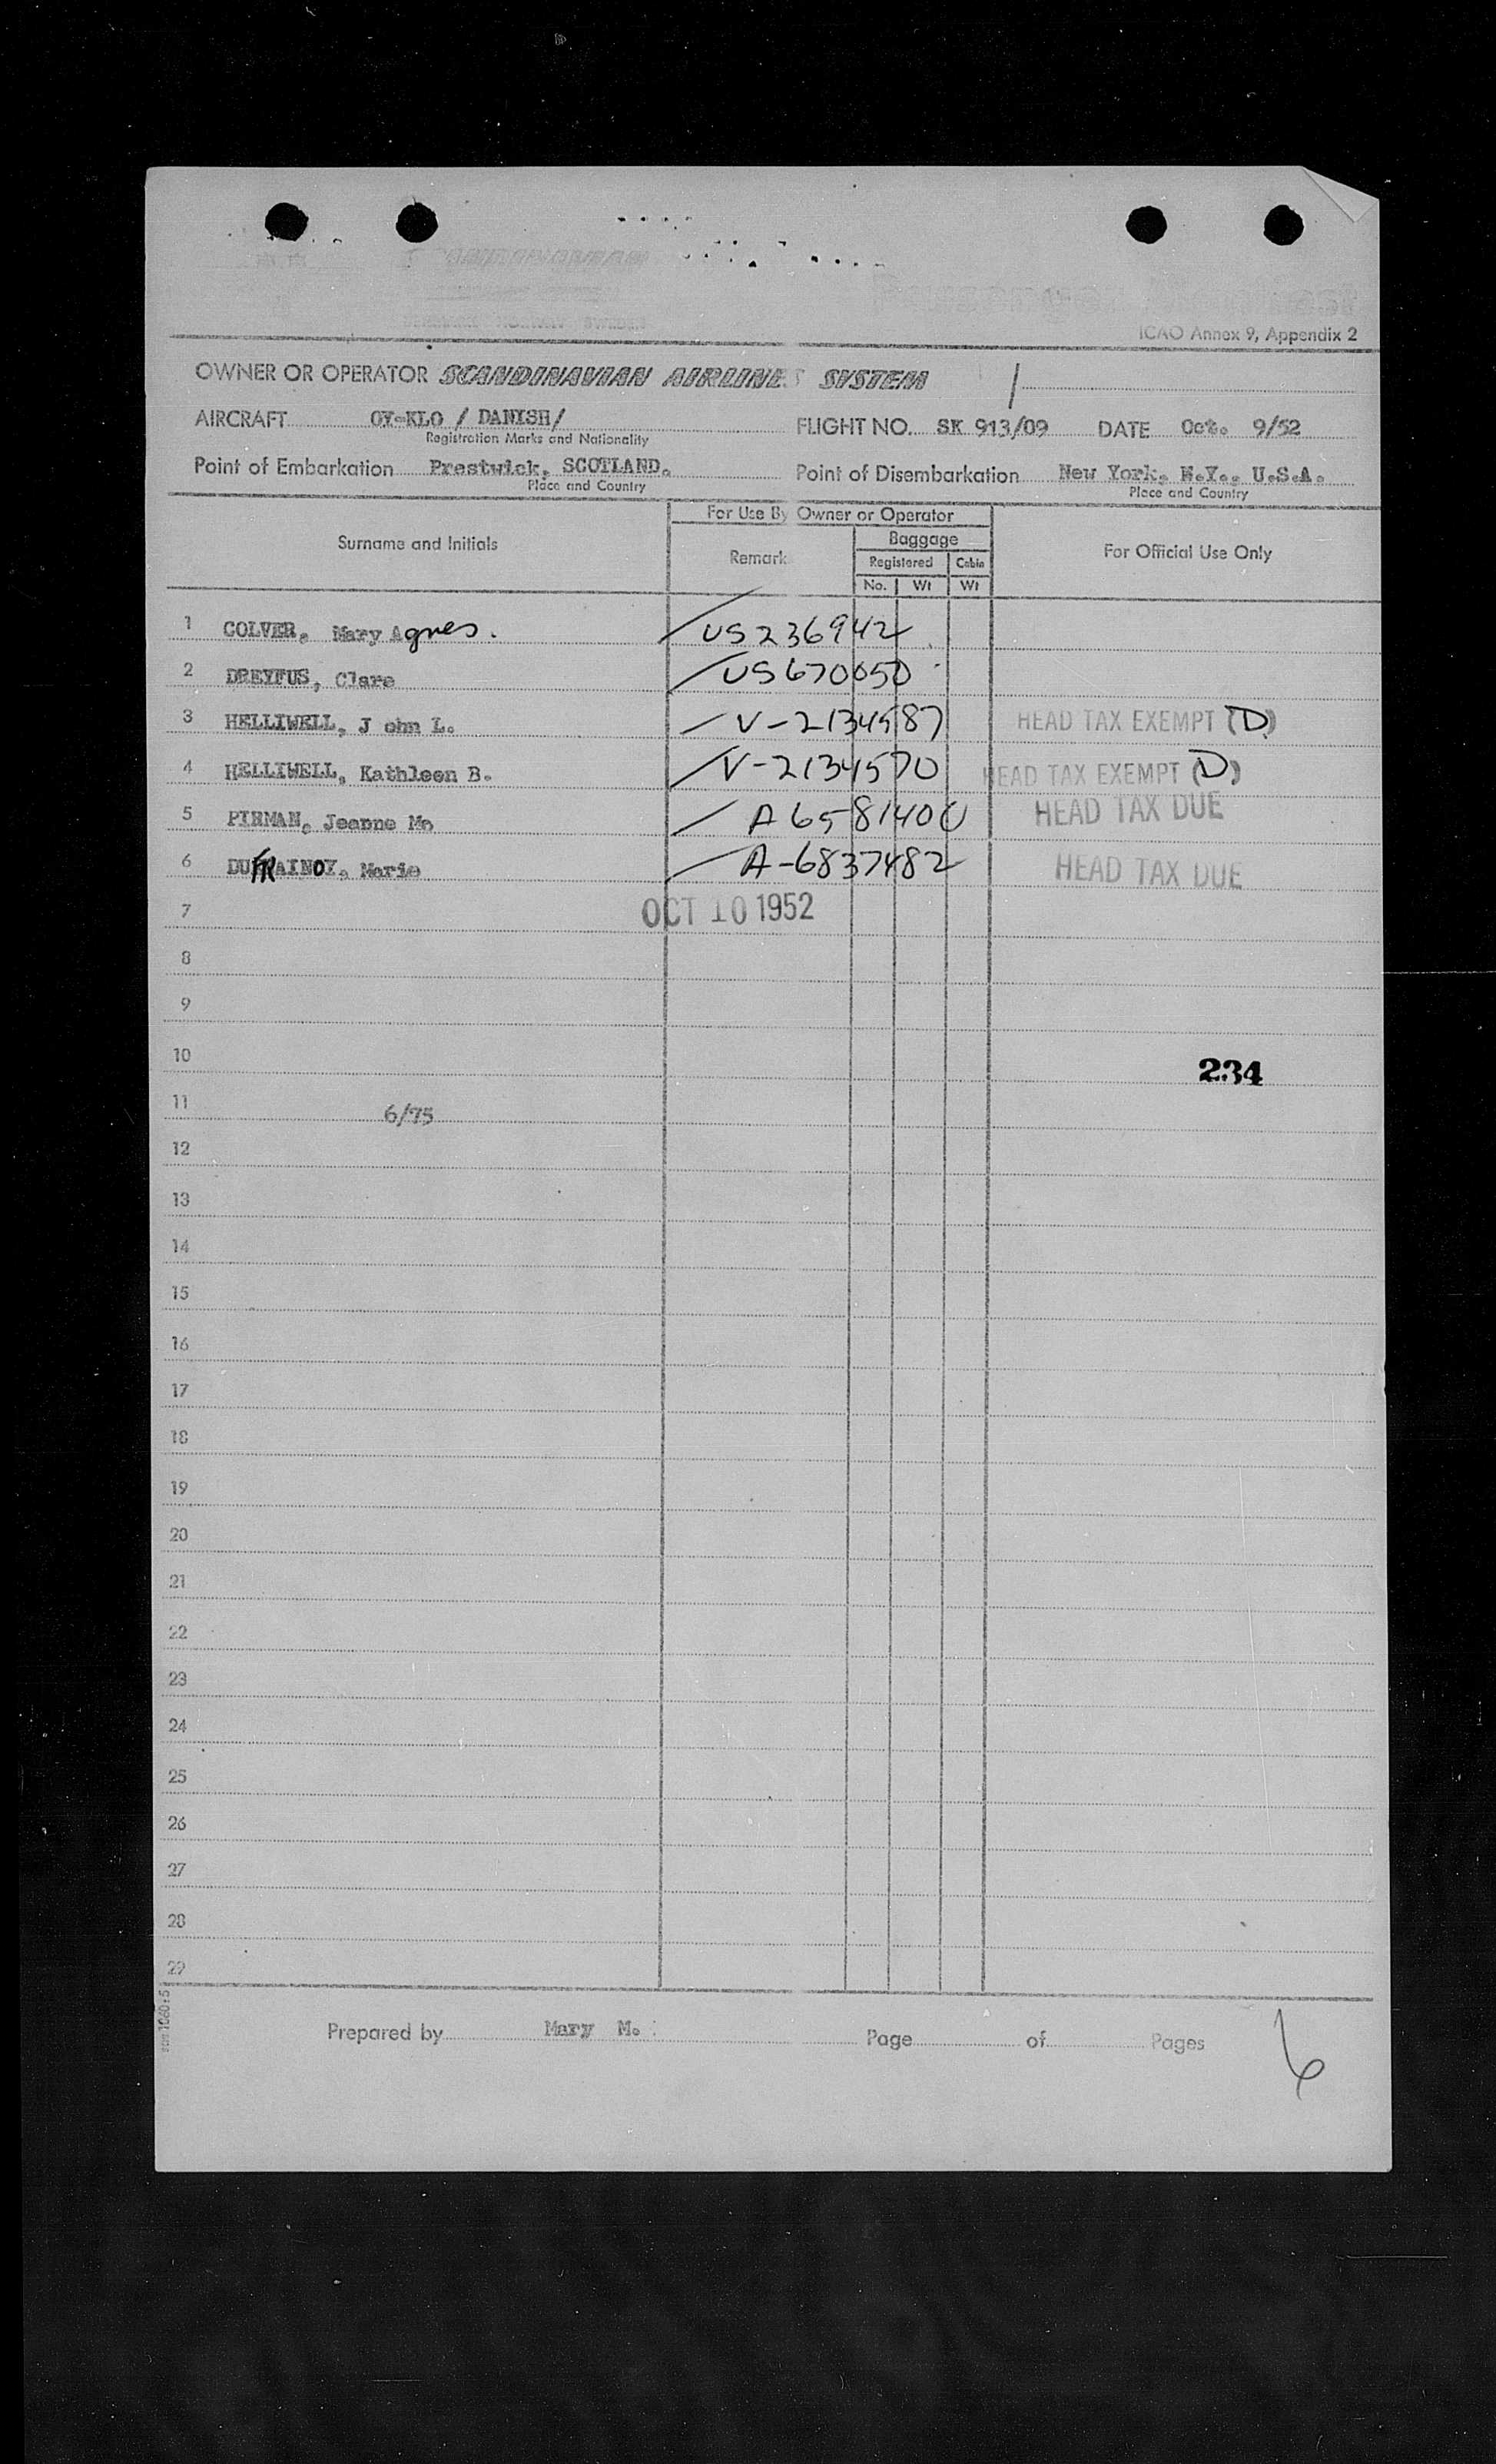 ICAO Annex 9, Appendix 2
OWNER OR OPERATOR SCANDINAVIAN AIRLINES SYSTEM
AIRCRAFT OY-KLO / DANISH/ FLIGHT NO. SK 913/09 DATE Oct. 9/52
Registration Marks and Nationality
Point of Embarkation Prestwick, SCOTLAND. Point of Disembarkation New York, N.Y., U.S.A.
Place and Country Place and Country
For Use By Owner or Operator
Surname and Initials Remark Baggage For Official Use Only
Registered Cabin
No. Wt Wt
1 COLVER, Mary Agnes. US 236942
2 DREYFUS, Clare US 670050
3 HELLIWELL, J ohn L. V-2134587 HEAD TAX EXEMPT (D)
4 HELLIWELL, Kathleen B. V-2134570 HEAD TAX EXEMPT (D)
5 PIRMAN, Jeanne M. A 6581400 HEAD TAX DUE
6 DUFRAINOY, Marie A-6837482 HEAD TAX DUE
7 OCT 10 1952
8
9
10 234
11 6/75
12
13
14
15
16
17
18
19
20
21
22
23
24
25
26
27
28
29
Prepared by Mary M. Page of Pages 6